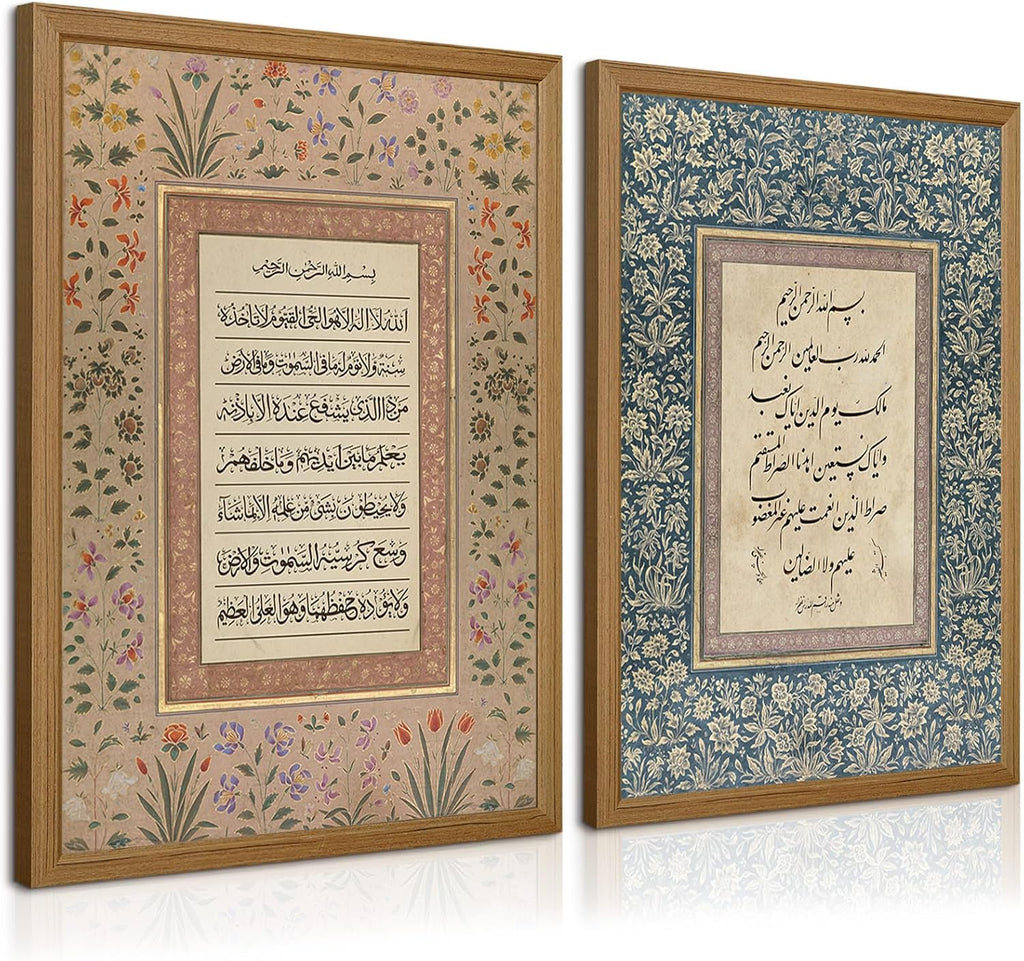 بِسْمِ اللهِ الرَّحْمٰنِ الرَّحِيْمِ
اَللهُ لَا اِلٰهَ اِلَّا هُوَ الْحَيُّ الْقَيُّوْمُ لَا تَأْخُذُهٗ
سِنَةٌ وَّلَا نَوْمٌ لَهٗ مَا فِي السَّمٰوٰتِ وَمَا فِي الْاَرْضِ
مَنْ ذَا الَّذِيْ يَشْفَعُ عِنْدَهٗ اِلَّا بِاِذْنِهٖ
يَعْلَمُ مَا بَيْنَ اَيْدِيْهِمْ وَمَا خَلْفَهُمْ
وَلَا يُحِيْطُوْنَ بِشَيْءٍ مِّنْ عِلْمِهٖ اِلَّا بِمَا شَآءَ
وَسِعَ كُرْسِيُّهُ السَّمٰوٰتِ وَالْاَرْضَ
وَلَا يَئُوْدُهٗ حِفْظُهُمَا وَهُوَ الْعَلِيُّ الْعَظِيْمُ
بسم الله الرحمن الرحیم
الحمد لله رب العالمین الرحمن الرحیم
مالک یوم الدین ایاک نعبد
وایاک نستعین اهدنا الصراط المستقیم
صراط الذین انعمت علیهم غیر المغضوب
علیهم ولا الضالین